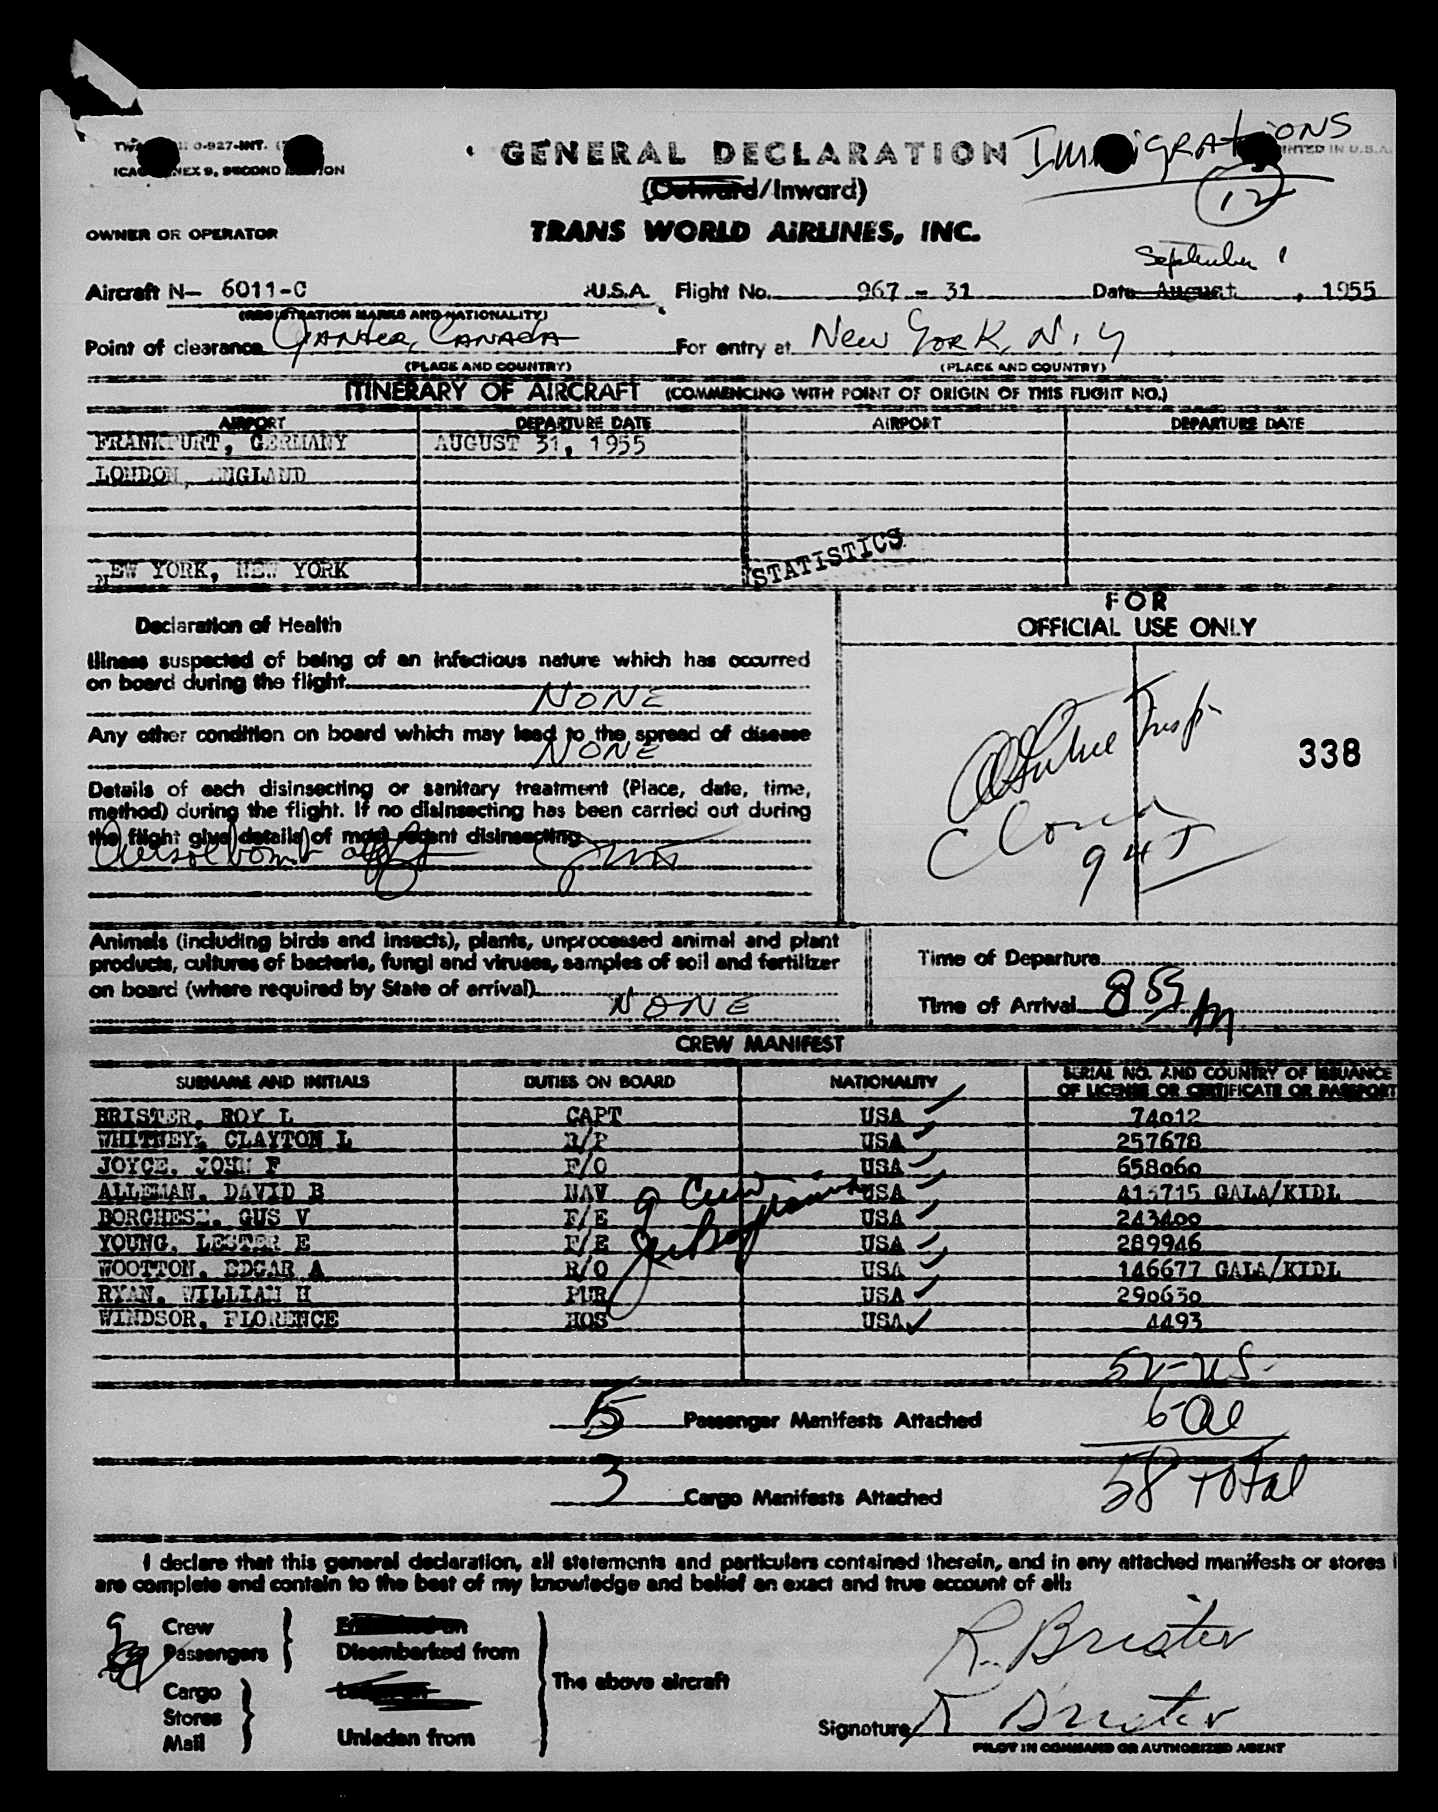 GENERAL DECLARATION IMMIGRATIONS
(Outward/Inward) 12
OWNER OR OPERATOR TRANS WORLD AIRLINES, INC.
September 1
Aircraft N- 6011-C U.S.A. Flight No. 967 - 31 Date August, 1955
(REGISTRATION MARKS AND NATIONALITY)
Point of clearance Gander, Canada For entry at New York, N.Y
(PLACE AND COUNTRY) (PLACE AND COUNTRY)
ITINERARY OF AIRCRAFT (COMMENCING WITH POINT OF ORIGIN OF THIS FLIGHT NO.)
AIRPORT DEPARTURE DATE AIRPORT DEPARTURE DATE
FRANKFURT, GERMANY AUGUST 31, 1955
LONDON, ENGLAND
STATISTICS
NEW YORK, NEW YORK
FOR
OFFICIAL USE ONLY
Declaration of Health
Illness suspected of being of an infectious nature which has occurred
on board during the flight
NONE
Any other condition on board which may lead to the spread of disease
NONE
338
Details of each disinsecting or sanitary treatment (Place, date, time,
method) during the flight. If no disinsecting has been carried out during
the flight give details of most recent disinsecting
945
Animals (including birds and insects), plants, unprocessed animal and plant
products, cultures of bacteria, fungi and viruses, samples of soil and fertilizer
on board (where required by State of arrival)
NONE
Time of Departure
Time of Arrival 8 59 AM
CREW MANIFEST
SURNAME AND INITIALS DUTIES ON BOARD NATIONALITY SERIAL NO. AND COUNTRY OF ISSUANCE
OF LICENSE OR CERTIFICATE OR PASSPORT
BRISTER, ROY L CAPT USA 74012
WHITNEY, CLAYTON L USA 257678
JOYCE, JOHN F F/O USA 658060
ALLEMAN, DAVID B NAV USA 413715 GALA/KIDL
BORGHESE, GUS V F/E USA 243400
YOUNG, LESTER E F/E USA 289946
WOOTTON, EDGAR A R/O USA 146677 GALA/KIDL
RYAN, WILLIAM H PUR USA 290630
WINDSOR, FLORENCE HOS USA 4493
9 Crew
52-US
5 Passenger Manifests Attached 6-al
3 Cargo Manifests Attached 58 Total
I declare that this general declaration, all statements and particulars contained therein, and in any attached manifests or stores
are complete and contain to the best of my knowledge and belief an exact and true account of all:
9 Crew
Passengers Disembarked from
Cargo
Stores
Mail Unladen from
The above aircraft
R. Brister
Signature R Brister
PILOT IN COMMAND OR AUTHORIZED AGENT